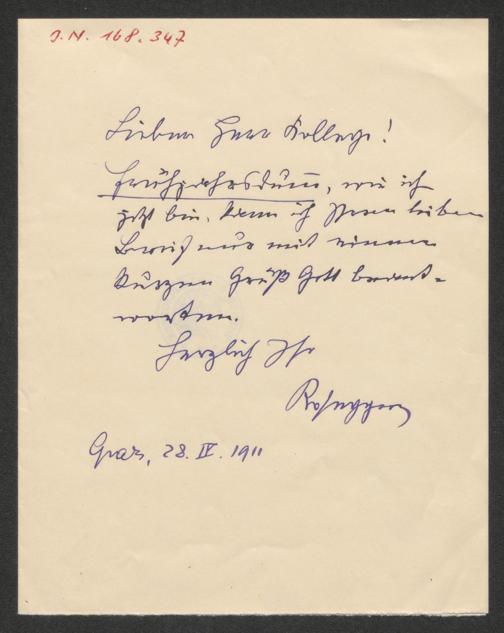 I.N. 168.347
Lieber Herr Kollege!
Frühjahrsdumm, wie ich
jetzt bin, kann ich Ihren lieben
Brief nur mit einem
kurzen Grüß Gott beant-
worten.
Herzlich Ihr
Rosegger
Graz, 28. IV. 1911